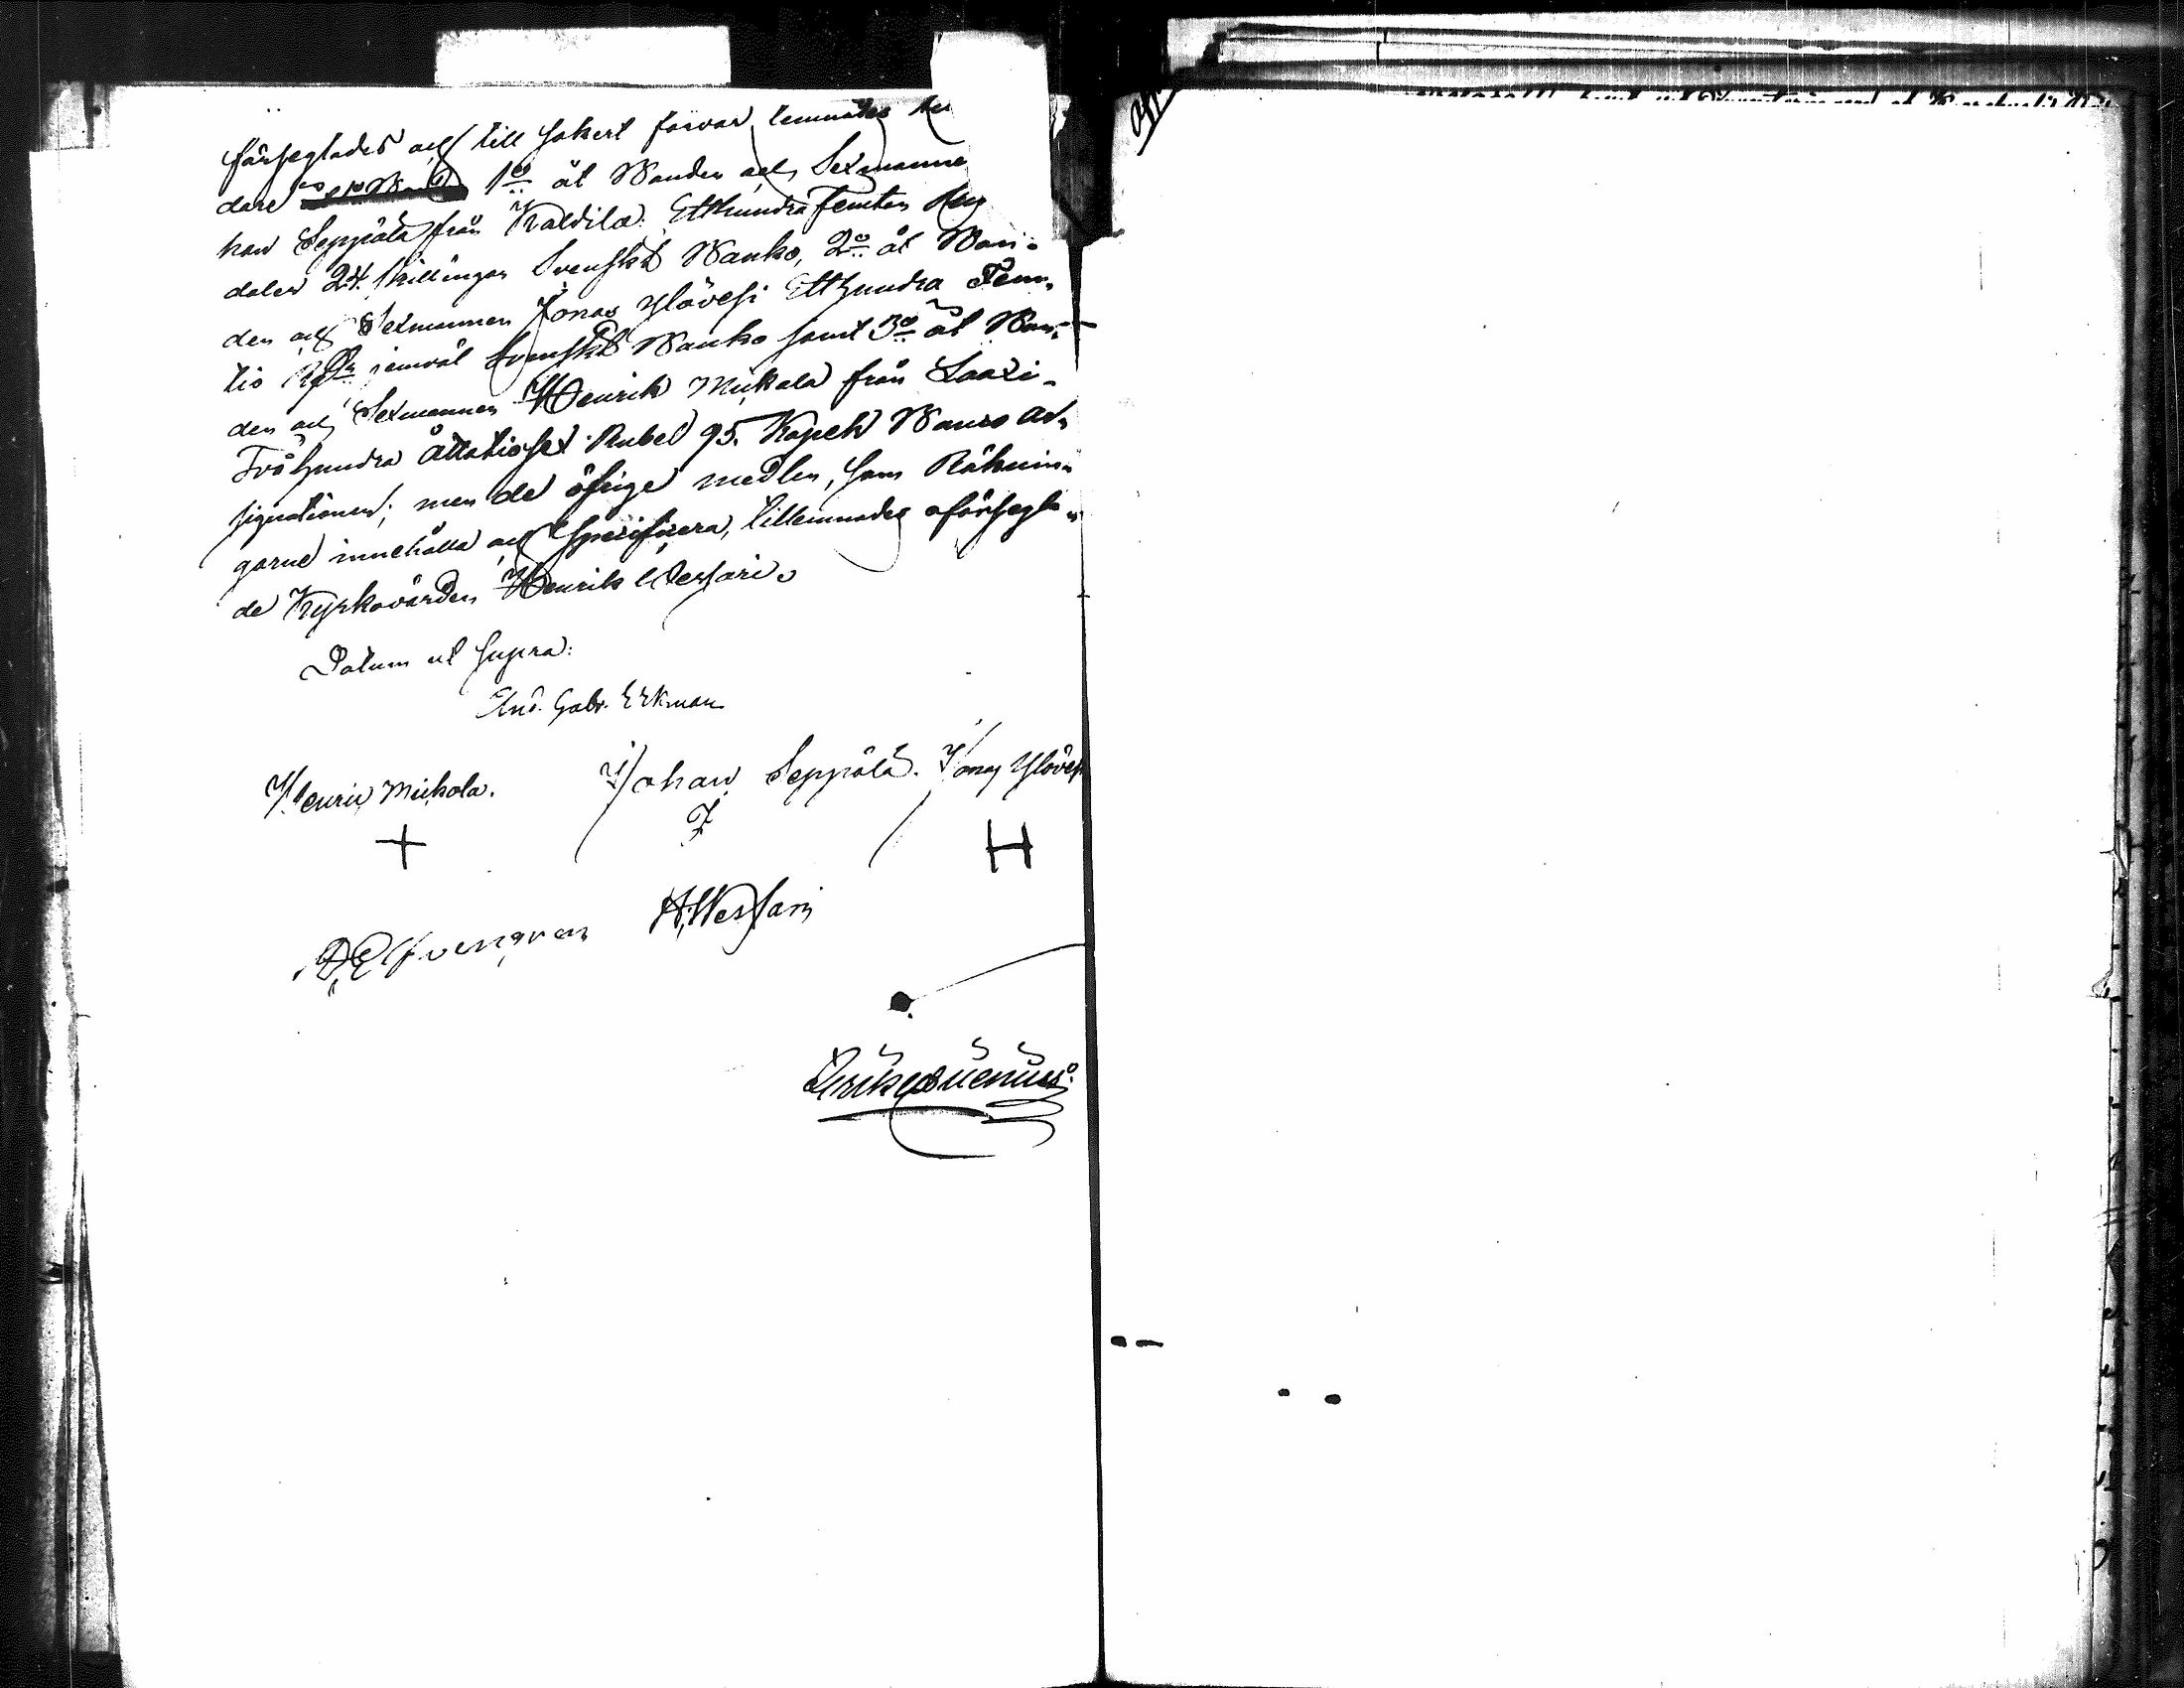 förseglades och till säkert förvar lemnades
dare 1o åt Bonden och Sexmannen
han Seppälä från Kaldila Etthundra Femton
daler 24. skillingar Svenskt Banko, 2o åt Bon-
den och Sexmannen Jonas Ylövesi Etthundra Fem-
tio RgDr jemväl Svenskt Banko samt 3o åt Bon-
den och Sexmannen Henrik Mickola från
Tvåhundra Åttatiosex Rubel 95. Kopek Banco As-
signationer; men de öfrige medlen, som Räknin-
garne innehålla och specificera, tillemnades oförsegla-
de Kyrkovärden Henrik Wessari.
Datum ut supra:
And. Gabr. Ekman
Henric Mickola. Johan Seppälä. Jonas Ylövesi
+ H
Elfvengren H. Wessari